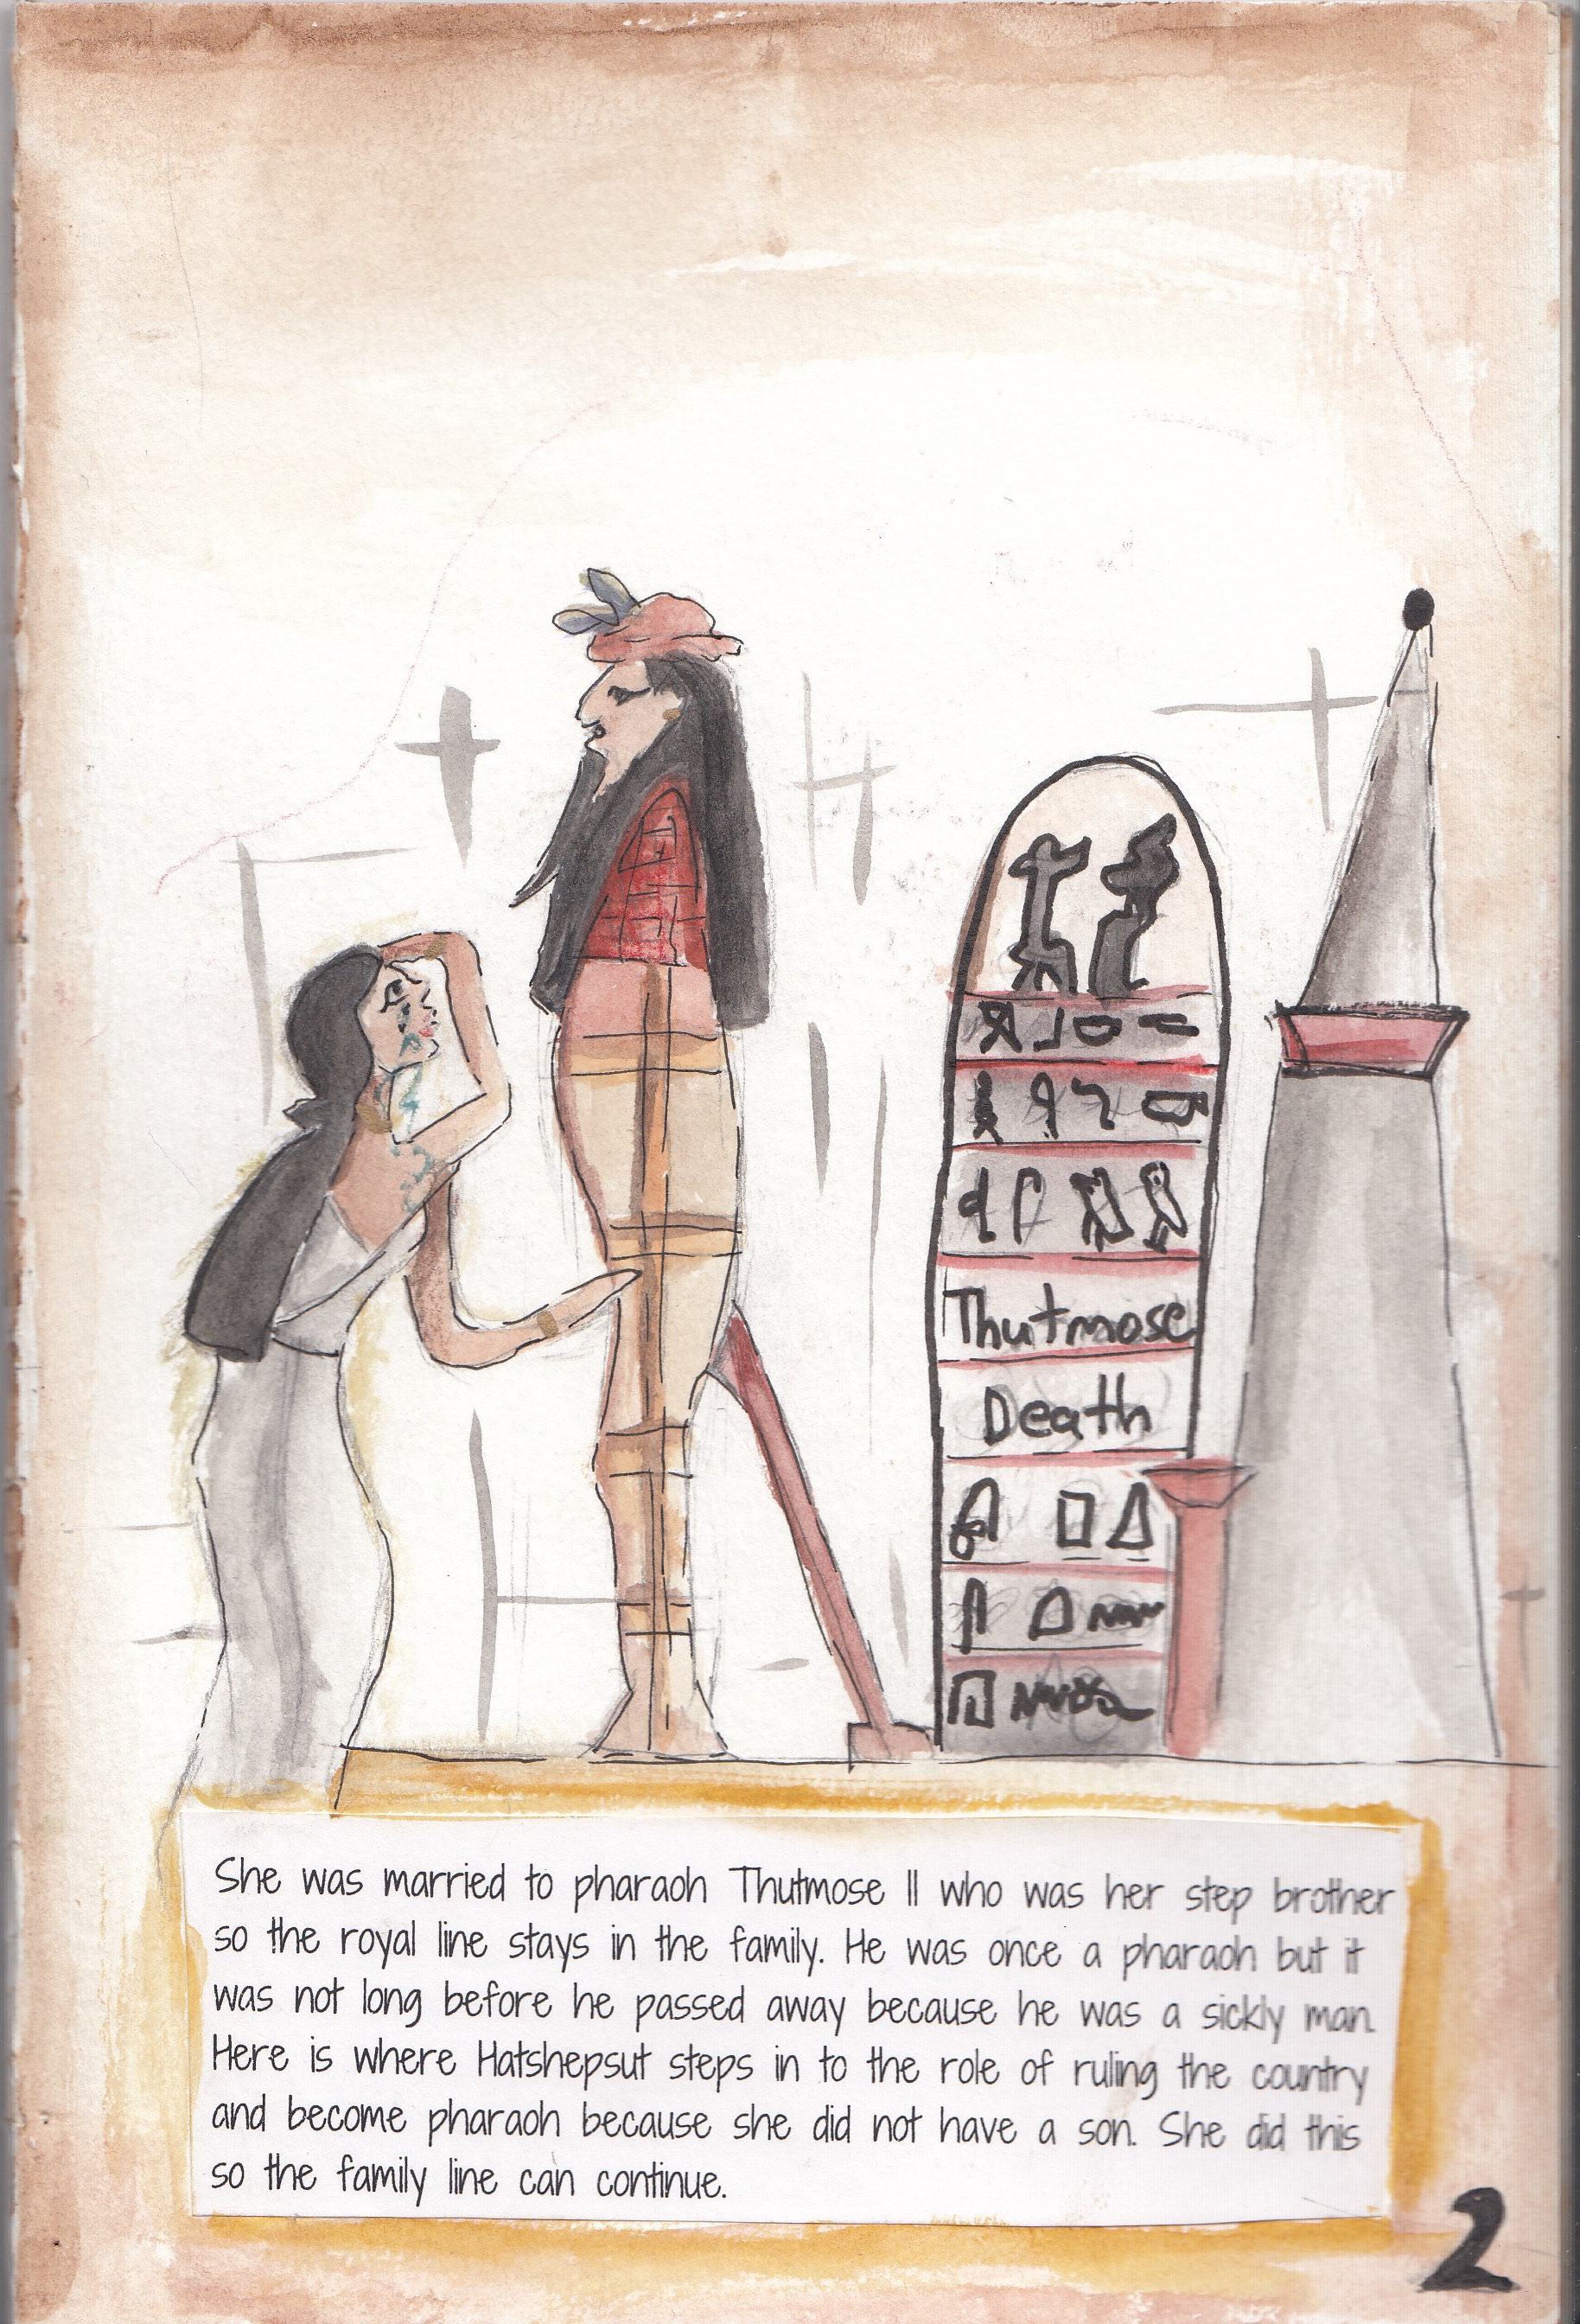 Thutmose
Death
She was married to pharaoh Thutmose II who was her step brother
so the royal line stays in the family. He was once a pharaoh but it
was not long before he passed away because he was a sickly man.
Here is where Hatshepsut steps in to the role of ruling the country
and become pharaoh because she did not have a son. She did this
so the family line can continue.
2